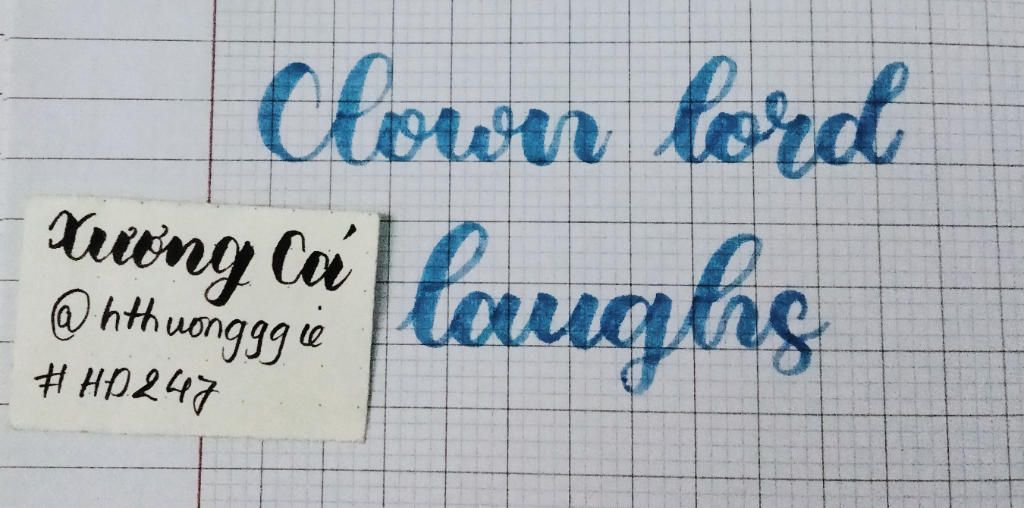 Clown lord
laughs
Xương Cá
@hthuongggie
#HD247